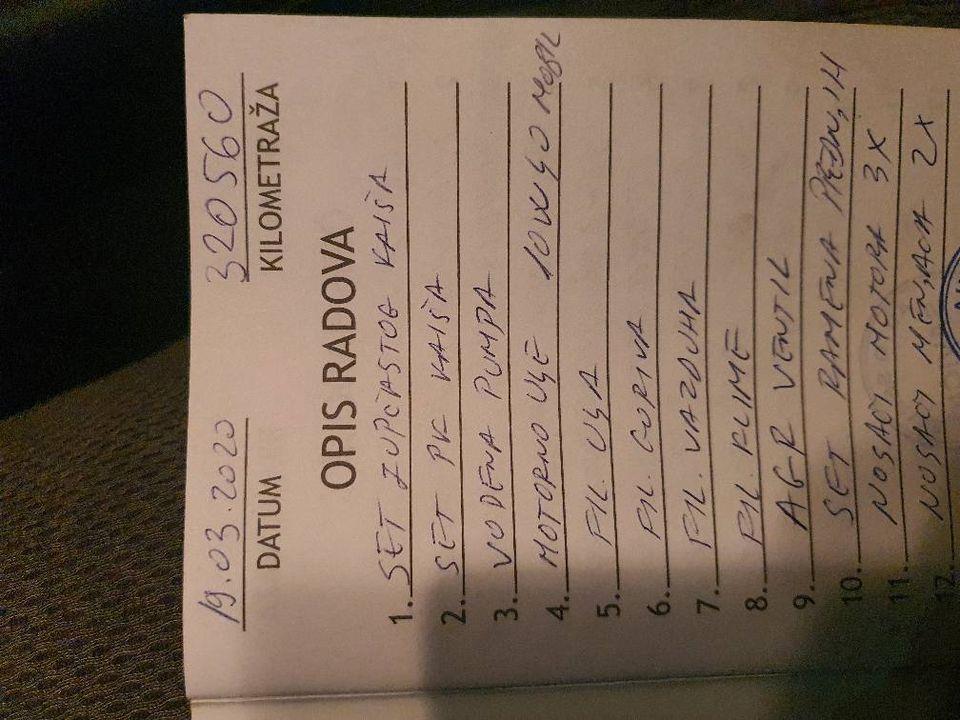 19.03.2020 320560
DATUM KILOMETRAŽA
OPIS RADOVA
1. SET ZUPČASTOG KAIŠA
2. SET PK KAIŠA
3. VODENA PUMPA
4. MOTORNO ULJE 10W40 MOBIL
5. FIL. ULJA
6. FIL. GORIVA
7. FIL. VAZDUHA
8. FIL. KLIME
9. AGR VENTIL
10. SET RAMENA PREDNJIH
11. NOSAČI MOTORA 3X
12. NOSAČI MENJAČA 2X